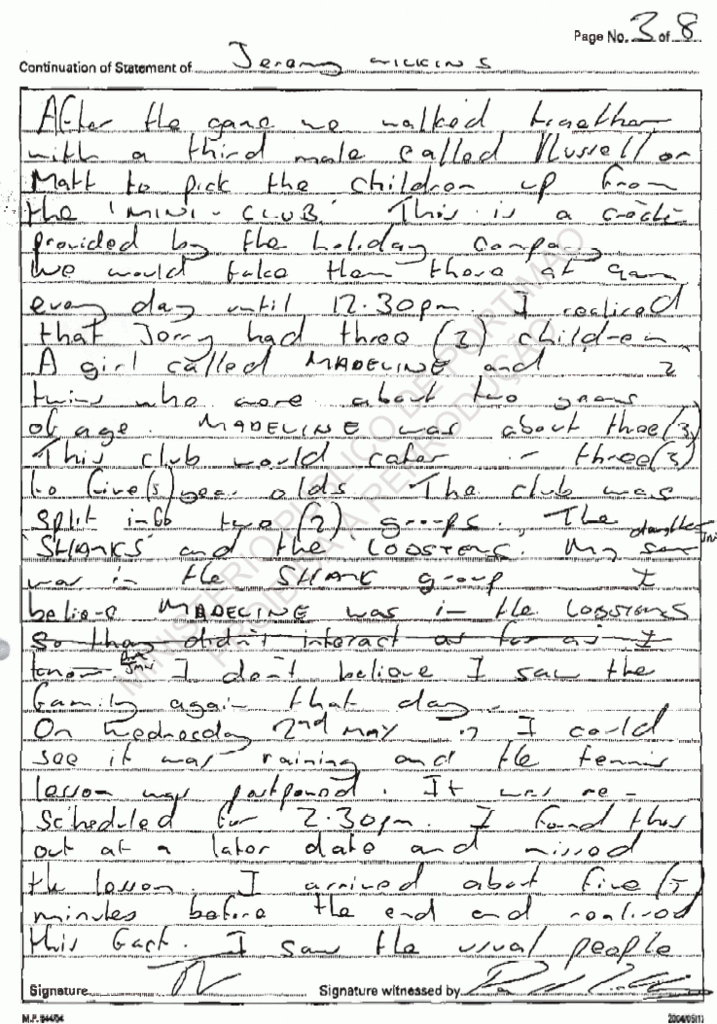 Page No. 3 of 8
Continuation of Statement of Jeremy Wilkins
After the game we walked together
with a third male called Russell or
Matt to pick the children up from
the 'MINI-CLUB' This is a creche
provided by the holiday company
We would take them there at 9am
every day until 12.30pm. I realised
that Jerry had three (3) children
A girl called MADELINE and 2
twins who were about two years
of age. MADELINE was about three(3)
This club would cater for three(3)
to five(5) year olds. The club was
split into two (2) groups, The
'SHARKS' and the LOBSTERS. My son daughter JW
was in the SHARK group I
believe MADELINE was in the LOBSTERS
so they didn't interact as far as I
know I don't believe I saw the
family again that day.
On Wednesday 2nd MAY 07 I could
see it was raining and the tennis
lesson was postponed. It was re-
scheduled for 2.30pm. I found this
out at a later date and missed
the lesson. I arrived about five (5)
minutes before the end and realised
this fact. I saw the usual people
Signature
Signature witnessed by
M.P. 944/04
2004/05(1)
MINISTÉRIO PÚBLICO DE PORTIMÃO
PROIBIDA A REPRODUÇÃO